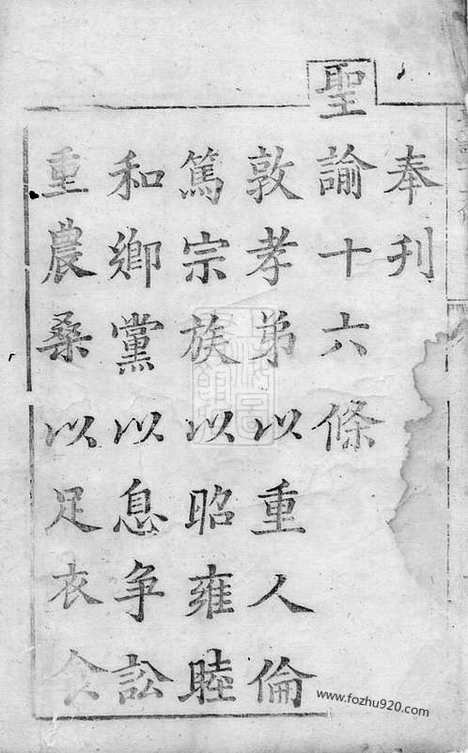 奉刊
聖諭十六條
敦孝弟以重人倫
篤宗族以昭雍睦
和鄉黨以息争訟
重農桑以足衣食
www.fozhu920.com